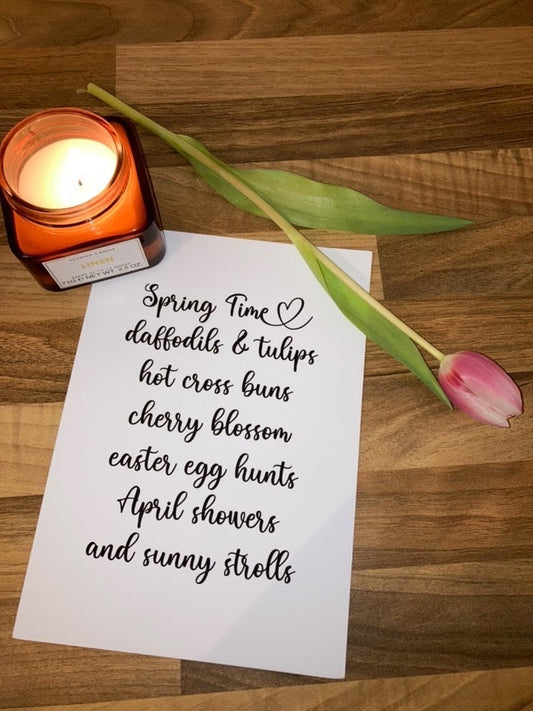 SCENTED CANDLE
LINEN
71G ℮ NET WT. 2.5 OZ
Spring Time
daffodils & tulips
hot cross buns
cherry blossom
easter egg hunts
April showers
and sunny strolls